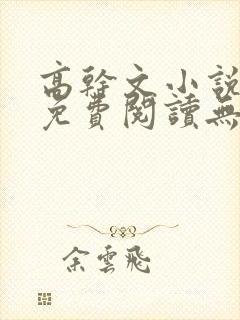 高幹文小說
免費閱讀無
余雲飛